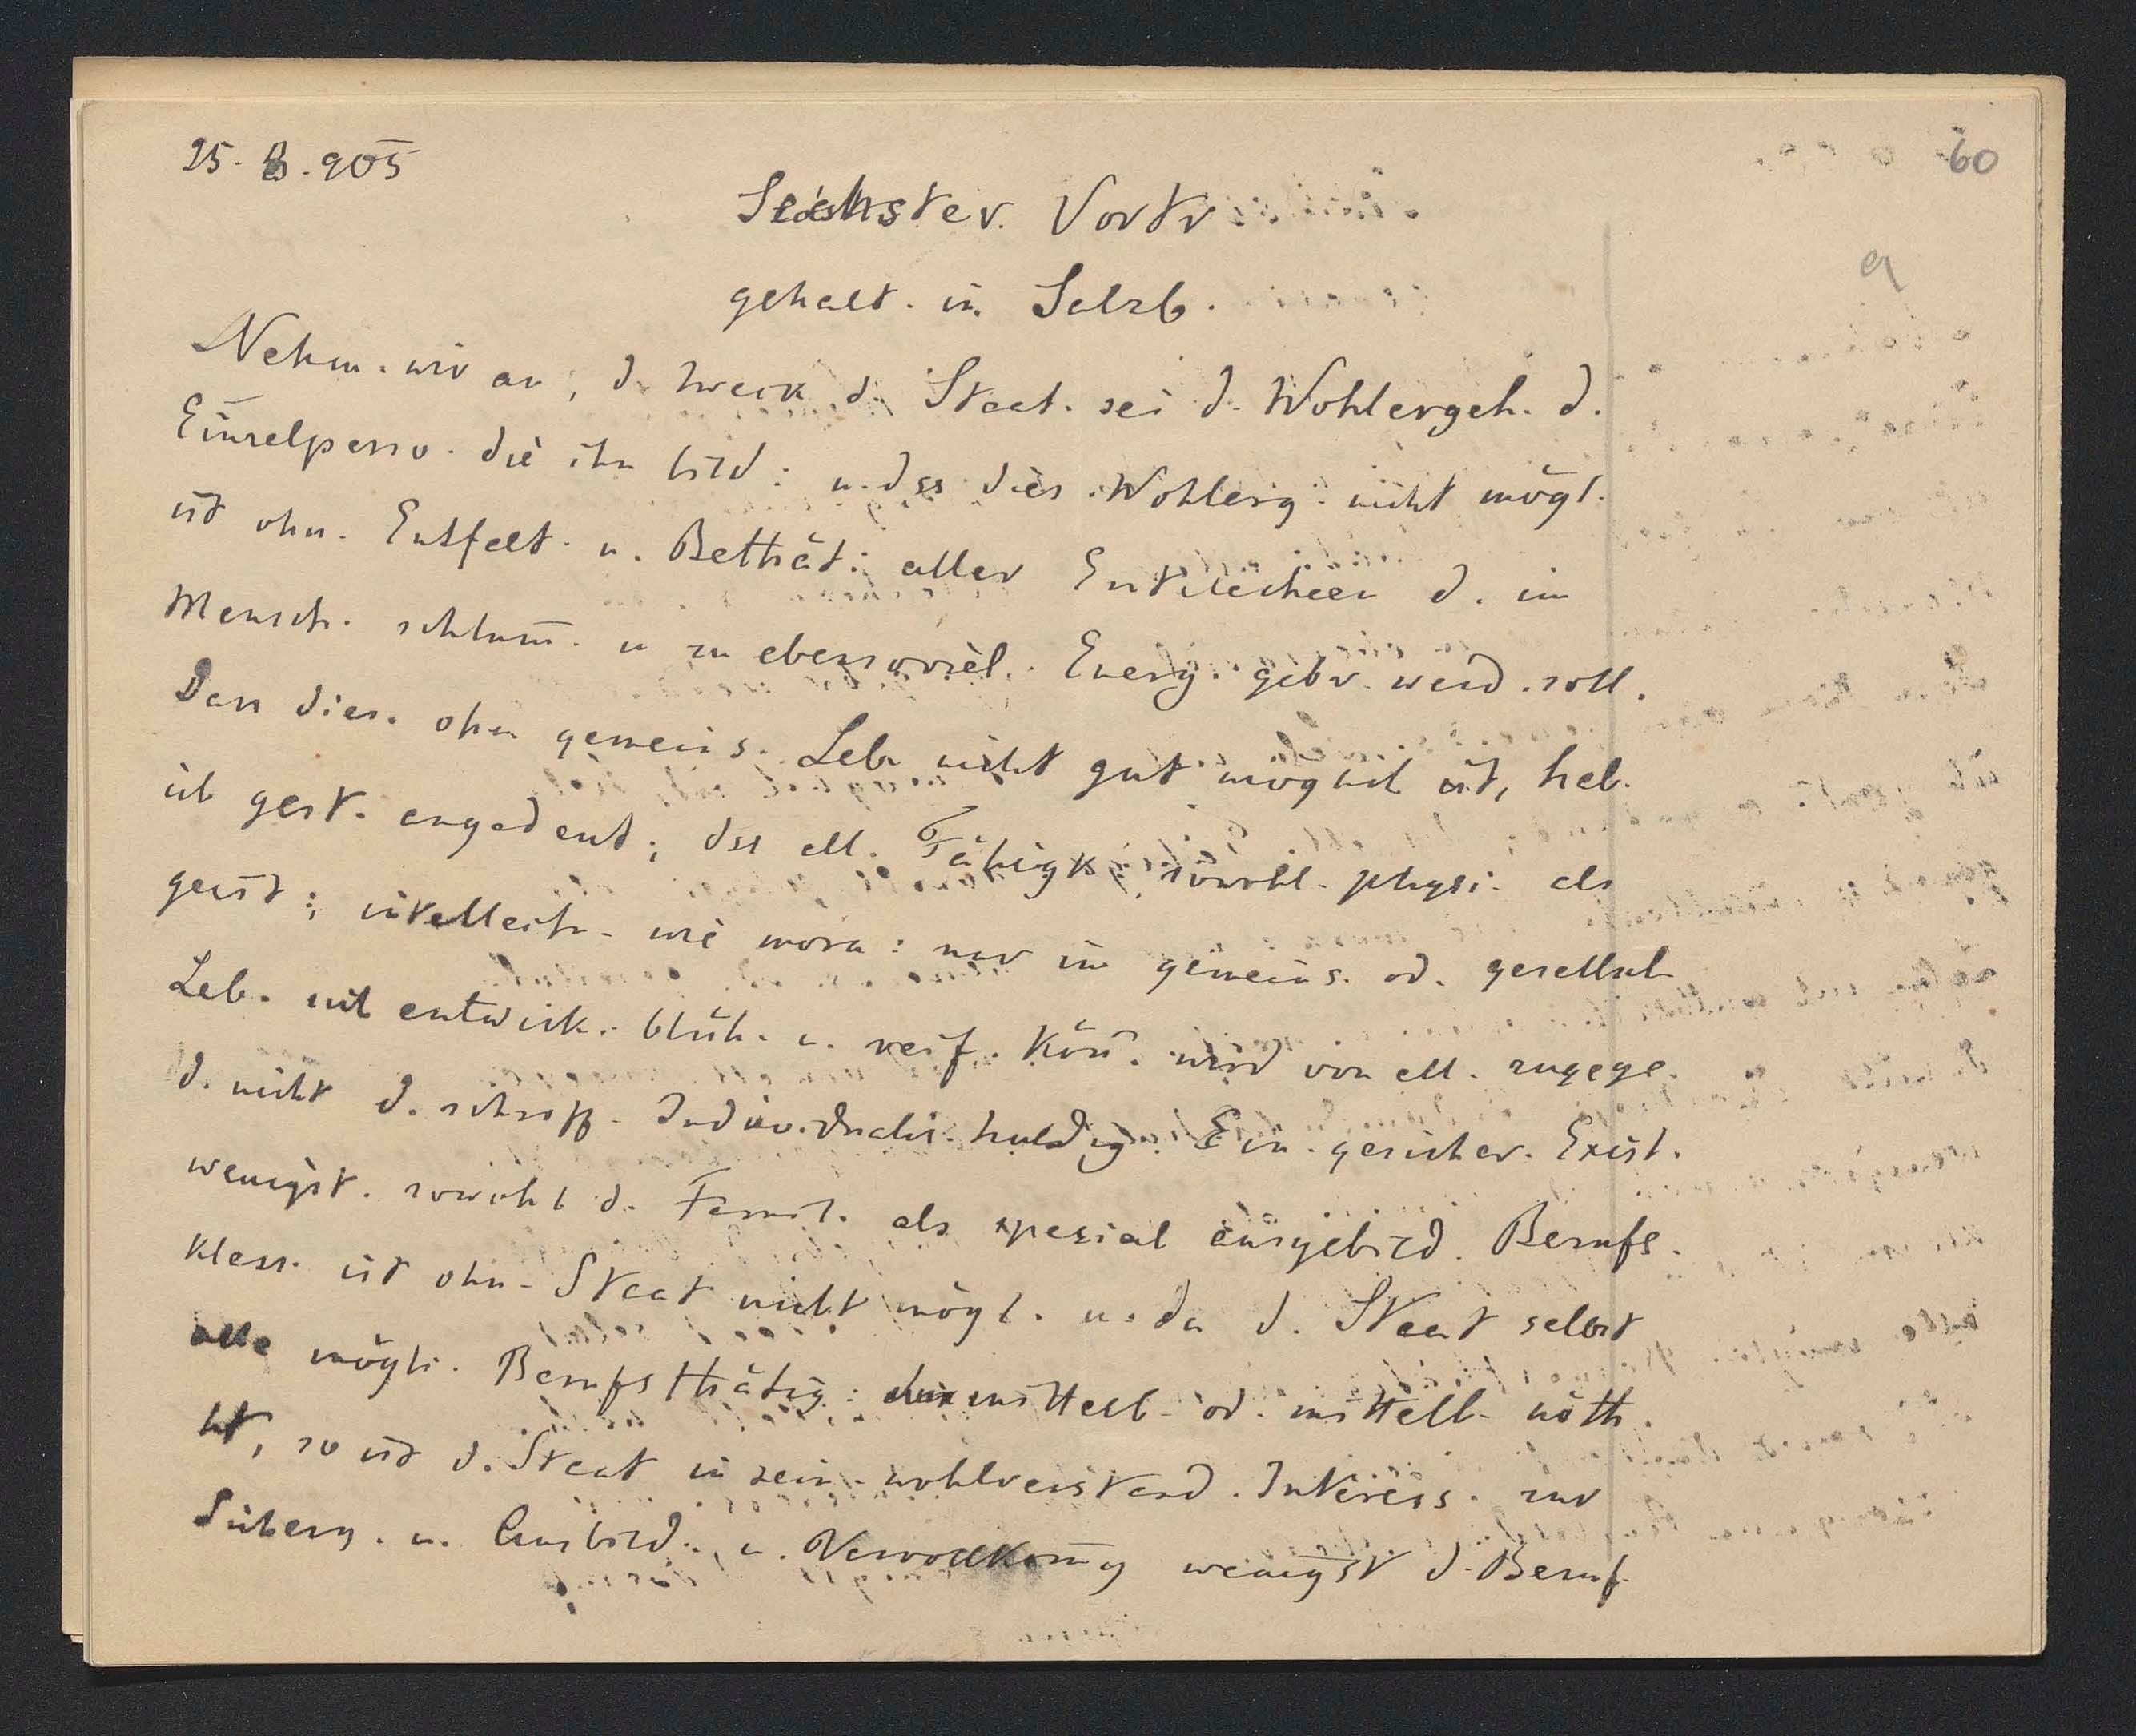 25. 8. 905
60
Sechster Vortr.
a
gehalt. in Salzb.
Nehm. wir an, d. Zweck d. Staat. sei d. Wohlergeh. d.
Einzelperso. die ihn bild. u. dss dies Wohlerg. nicht mögl.
ist ohn. Entfalt. u. Bethät. aller Entelechien d. im
Mensch. schlum̄. u zu ebensoviel. Energ. gebr. werd. soll.
Dass dies. ohn gemeins. Leb. nicht gut möglich ist, hab.
ich gest. angedeut., dss all. Fähigk. sowohl physi. als
geist., intellectu. wie mora. nur im gemeins. od. gesellsch
Leb. sich entwick. blüh. u. reif. kön̄. wird von all. zugege.
d. nicht d. schroff. Individualis. huldig. Ein gesicher. Exist.
wenigst. sowohl d. Famil. als spezial ausgebild. Berufs.
klass. ist ohn. Staat nicht mögl. u. da d. Staat selbst
alle mögli. Berufsthätig. unmittelb. od. mittelb. nöth.
hat, so ist d. Staat in sein. wohlverstand. Interess. zur
Sicherg. u. Ausbild. u. Vervollkom̄g wenigst d. Beruf.